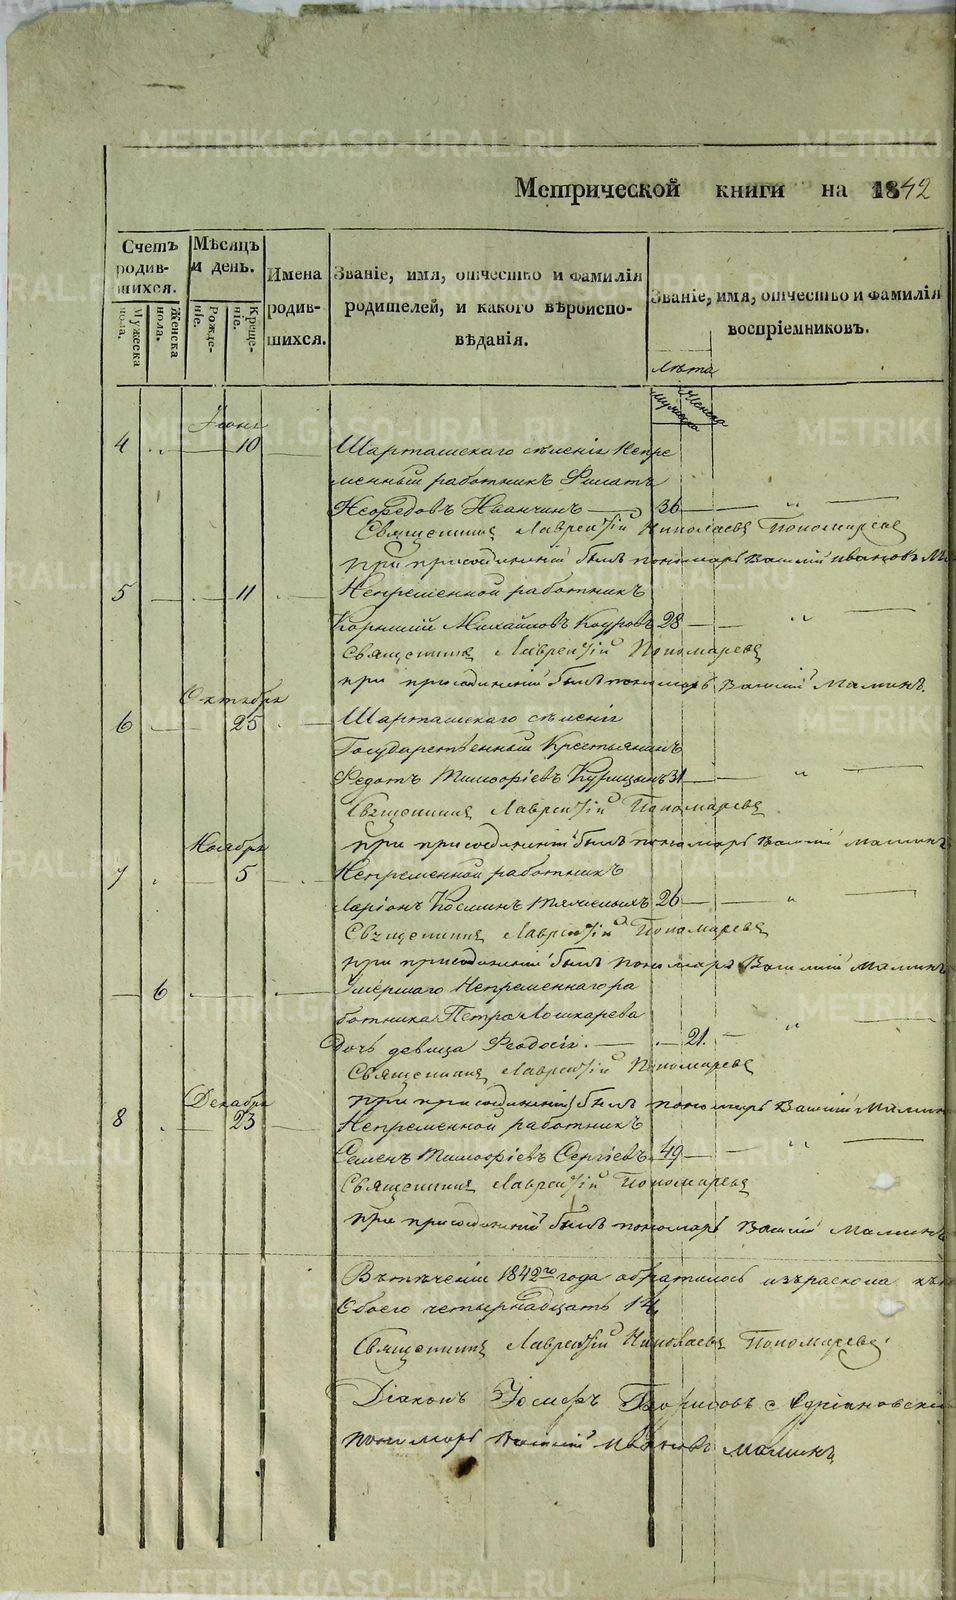 METRIKI.GASO-URAL.RU
Метрической книги на 1842
Счетъ родив-шихся.
Мужеска пола.
Женска пола.
Мѣсяцъ и день.
Рожде-ніе.
Креще-ніе.
Имена родив-шихся.
Званіе, имя, отчество и фамилія
родителей, и какого вѣроиспо-
вѣданія.
Званіе, имя, отчество и фамилія
воспріемниковъ.
лѣта
мужеска
женска
4 10 Шарташскаго селенія Непре
менный работникъ Филатъ
36
Священникъ Лаврентій Николаевъ Пономаревъ
при присоединеніи былъ пономарь Василій Ивановъ
5 11 Непременной работникъ
28
Священникъ Лаврентій Пономаревъ
при присоединеніи былъ пономарь Василій Маминъ.
Октября
6 25 Шарташскаго селенія
Государственный Крестьянинъ
Федотъ Тимофіевъ Курицынъ 31
Священникъ Лаврентій Пономаревъ
при присоединеніи былъ пономарь Василій Маминъ
Ноября
7 5 Непременной работникъ
Ларіонъ Косминъ 26
Священникъ Лаврентій Пономаревъ
при присоединеніи былъ пономарь Василій Маминъ
6 Умершаго Непременнаго ра
ботника Петра Лошкарева
Дочь девица Феодосія. 21.
Священникъ Лаврентій Пономаревъ
при присоединеніи былъ пономарь Василій Мамин
Декабря
8 23 Непременной работникъ
Семенъ Тимофіевъ Сергіевъ 49
Священникъ Лаврентій Пономаревъ
при присоединеніи былъ пономарь Василій Маминъ
Въ теченіи 1842го года обратилось изъ раскола
Обоего четырнадцать 14,
Священникъ Лаврентій Николаевъ Пономаревъ.
Діаконъ Іосифъ
пономарь Василій Ивановъ Маминъ